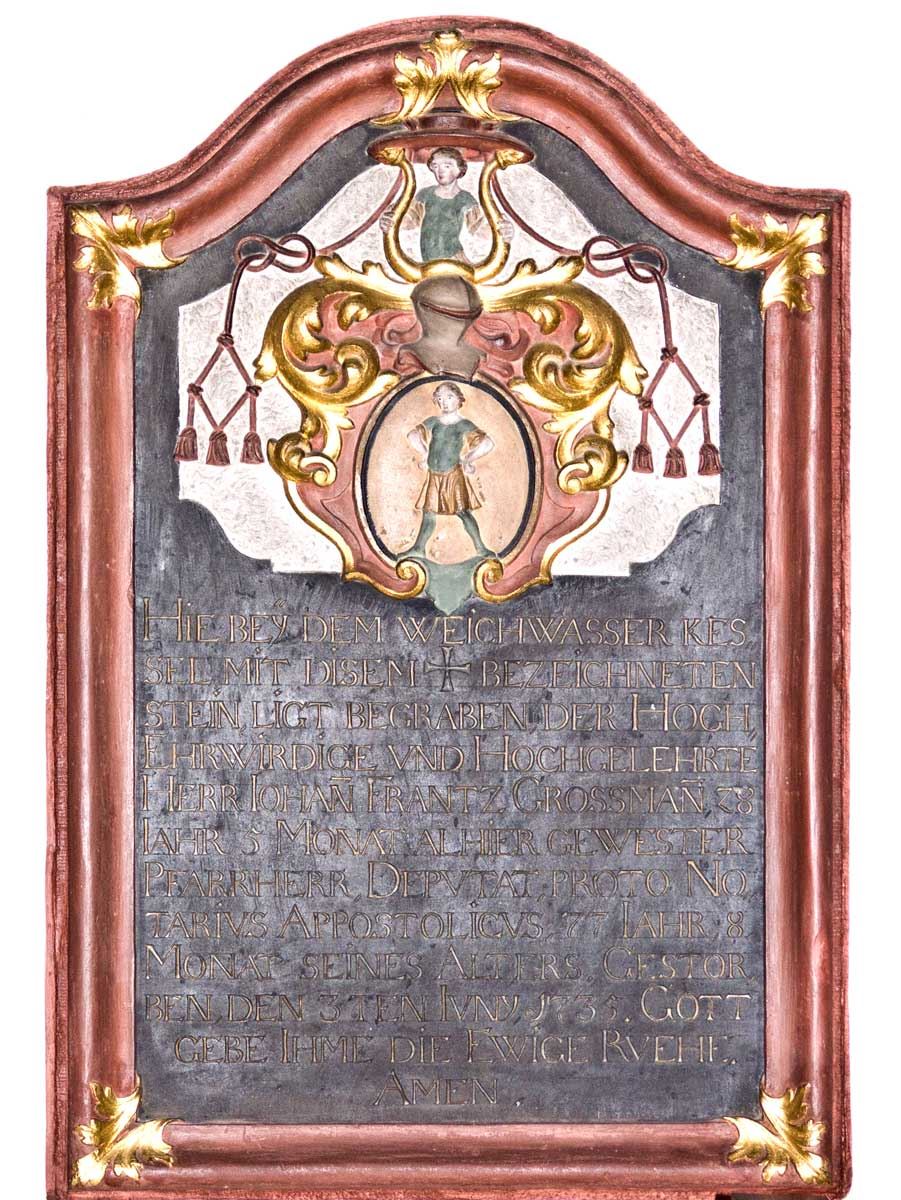 HIE BEӰ DEM WEICHWASSER KES
SEL MIT DISEM ✠ BEZEICHNETEN
STEIN, LIGT BEGRABEN, DER HOCH,
EHRWIRDIGE VND HOCHGELEHRTE
HERR IOHAÑ FRANTZ GROSSMAÑ, 28
IAHR 5 MONAT ALHIER GEWESTER
PFARRHERR, DEPVTAT, PROTO NO,
TARIVS APPOSTOLICVS, 77 IAHR 8
MONAT SEINES ALTERS, GESTOR
BEN, DEN 3TEN IVNY, 1735, GOTT
GEBE IHME DIE EWIGE RVEHE,
AMEN.